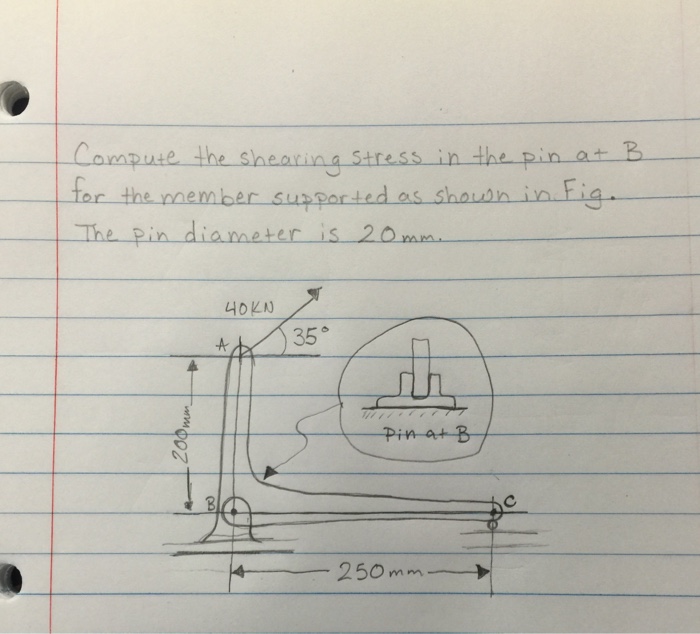 Compute the shearing stress in the pin at B
for the member supported as shown in Fig.
The pin diameter is 20mm.
40KN
A
35°
200mm
Pin at B
B
C
250mm